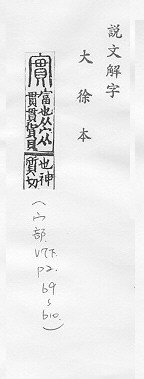 説文解字
大徐本
實
富也从宀从
貫貫貨貝
也神
質切
(宀部.
V7下.
p2.
b9
~
b10.)